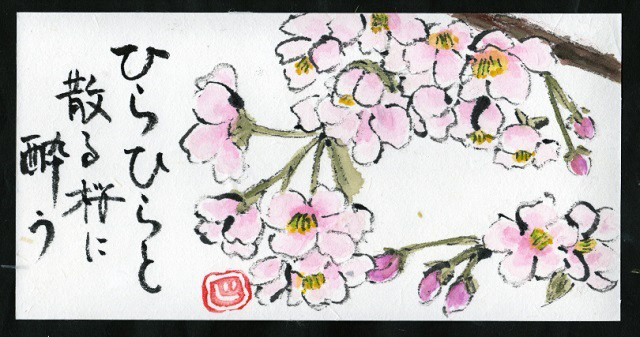 ひらひらと
散る桜に
酔う